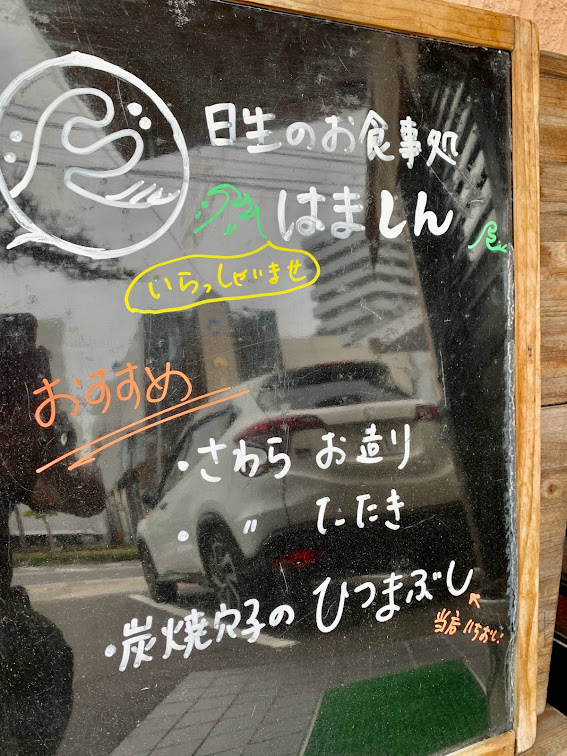 日生のお食事処
はましん
いらっしゃいませ
おすすめ
・さわら お造り
・ 〃 たたき
・炭焼穴子の ひつまぶし
当店 いちおし!